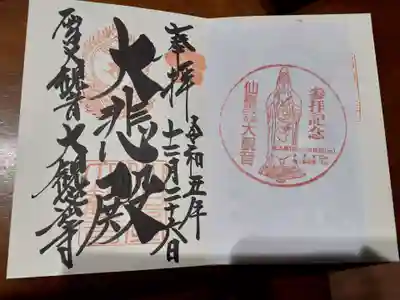 参拝記念
仙臺
大観音
奉拝
令和五年
十二月二十六日
大悲殿
観音 大観密寺